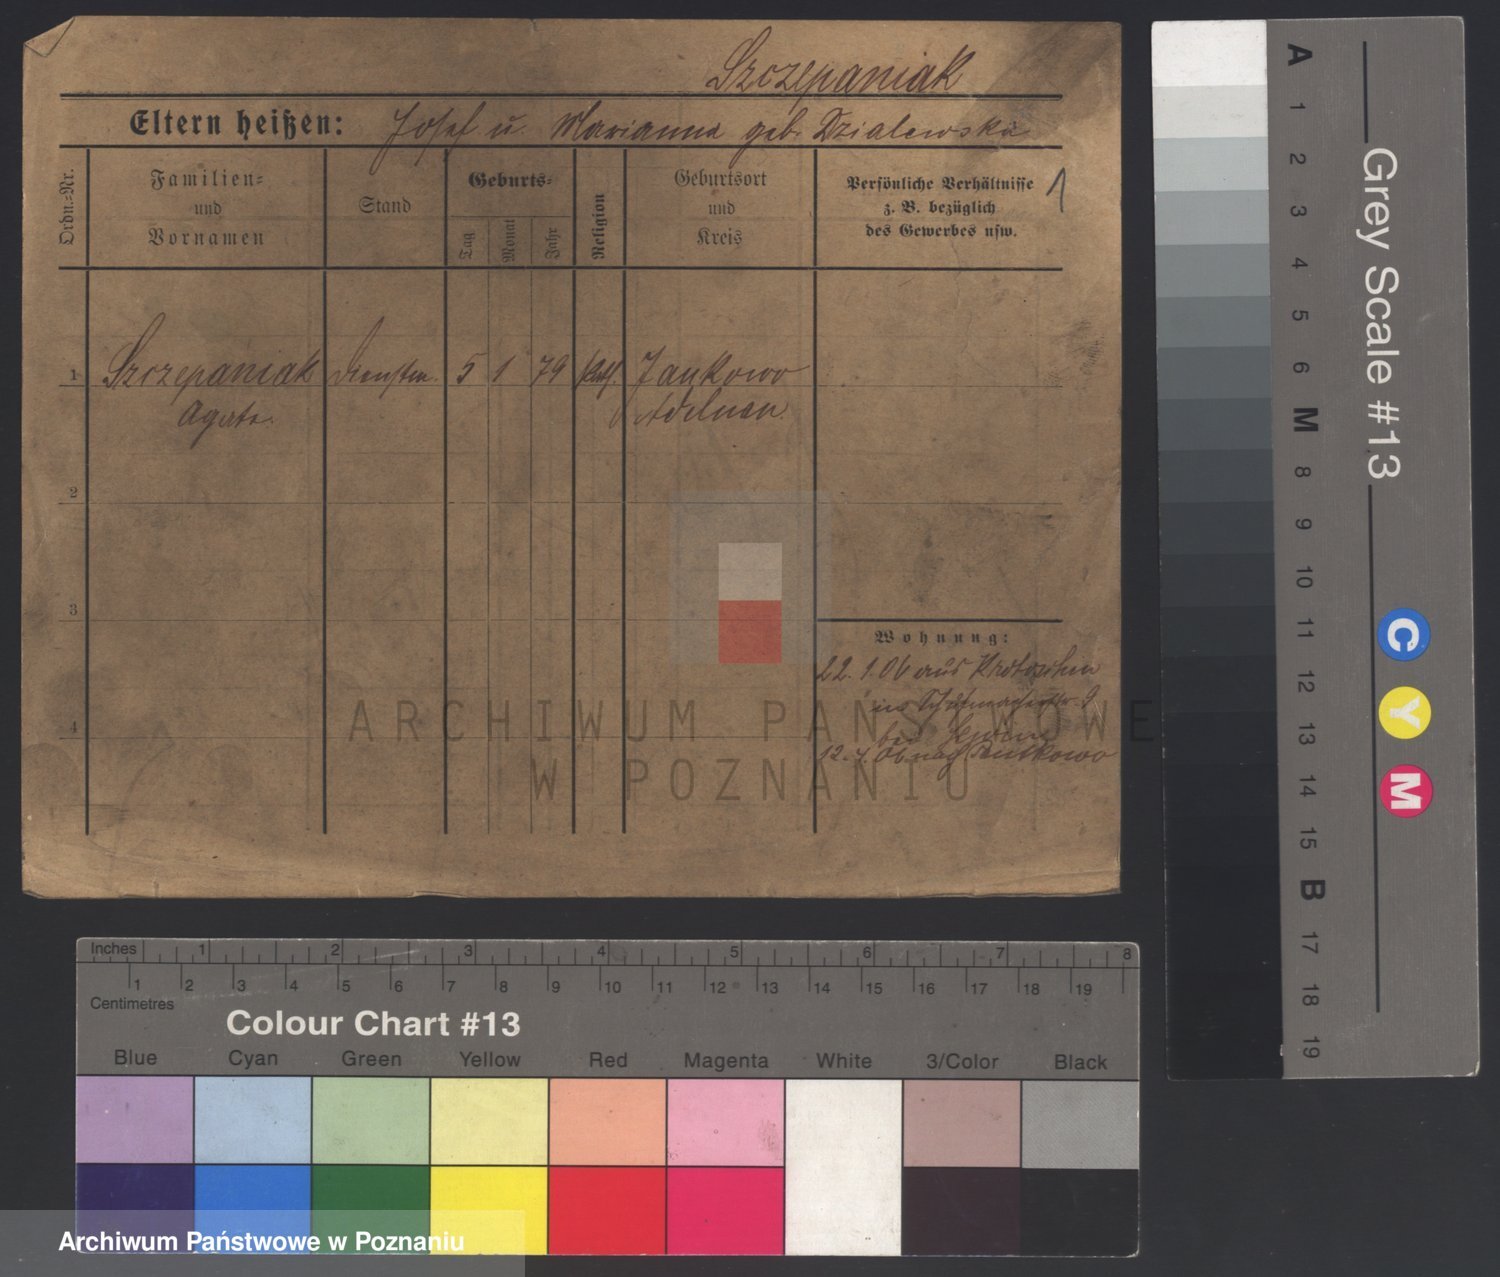 Szczepaniak
Eltern heißen: Josef u. Marianna geb. Dzialewska
Ordn.-Nr.
Familien= und Vornamen
Stand
Geburts=
Tag
Monat
Jahr
Religion
Geburtsort und Kreis
Persönliche Verhältnisse
z. B. bezüglich
des Gewerbes usw.
1
1 Szczepaniak Dienstm. 5 1 79 kath. Jankowo
Agata Adelnau
2
3
4
Wohnung:
22. 1. 06 aus Krotoschin
9
bei
12. 4. 06 nach
ARCHIWUM PAŃSTWOWE
W POZNANIU
Grey Scale #13
A 1 2 3 4 5 6 M 8 9 10 11 12 13 14 15 B 17 18 19
C
Y
M
Inches 1 2 3 4 5 6 7 8
1 2 3 4 5 6 7 8 9 10 11 12 13 14 15 16 17 18 19
Centimetres
Colour Chart #13
Blue Cyan Green Yellow Red Magenta White 3/Color Black
Archiwum Państwowe w Poznaniu